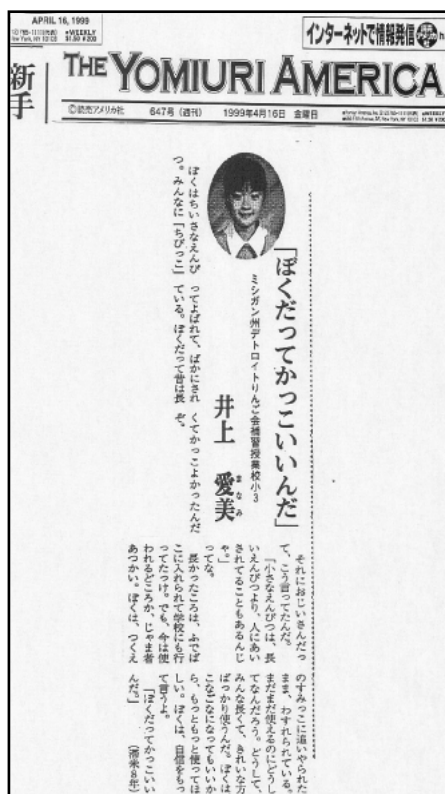 APRIL 16, 1999
●WEEKLY
$1.50 ¥200
インターネットで情報発信
新手
THE YOMIURI AMERICA
©読売アメリカ社
647号 (週刊)
1999年4月16日 金曜日
「ぼくだってかっこいいんだ」
ミシガン州デトロイトりんご会補習授業校小3
井上 愛美
まなみ
ぼくはちいさなえんぴ
つ。みんなに「ちびっこ」
ってよばれて、ばかにされ
ている。ぼくだって昔は長
くてかっこよかったんだ
ぞ。
それにおじいさんだっ
て、こう言ってたんだ。
「小さなえんぴつは、長
いえんぴつより、人にあい
されてることもあるんじ
ゃ。」
ってな。
長かったころは、ふでば
こに入れられて学校にも行
ってたっけ。でも、今は使
われるどころか、じゃま者
あつかい。ぼくは、つくえ
のすみっこに追いやられた
まま、わすれられている。
まだまだ使えるのにどうし
てなんだろう。どうして、
みんな長くて、きれいな方
ばっかり使うんだ。ぼくは
こなごなになってもいいか
ら、もっともっと使ってほ
しい。ぼくは、自信をもっ
て言うよ。
「ぼくだってかっこいい
んだ。」
(滞米8年)